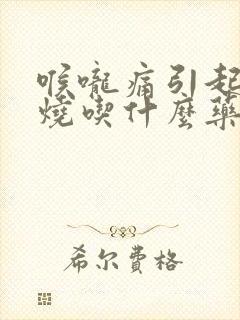 喉嚨痛引起
燒喫什麼藥
希尔費格